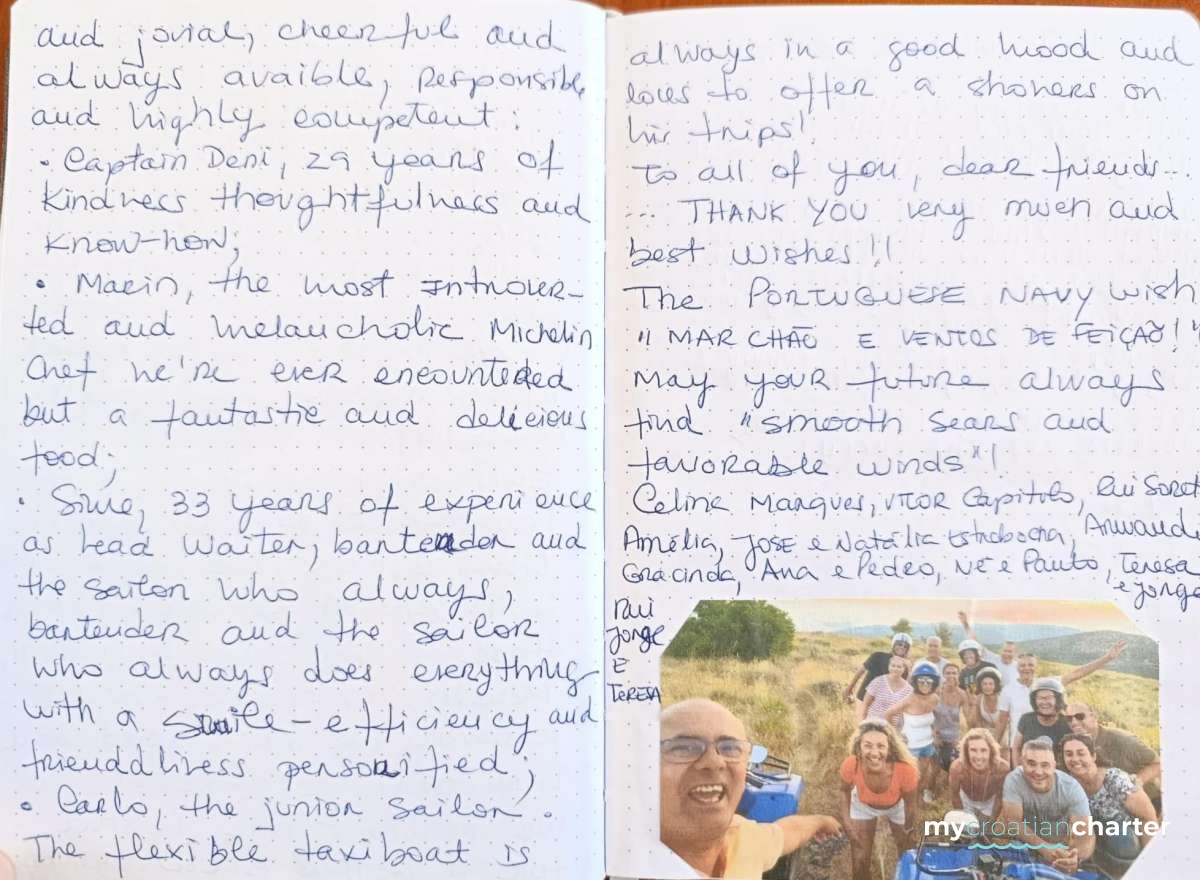 and jovial, cheerful and
always avaible, responsible
and highly competent:
• Captain Deni, 29 years of
kindness thoughtfulness and
know-how;
• Marin, the most introver-
ted and melancholic Michelin
Chef he're ever encountered
but a fantastic and delicious
food;
• Sime, 33 years of experience
as head waiter, bartender and
the sailor who always,
bartender and the sailor
who always does everything
with a smile-efficiency and
frienddliness personified;
• Carlo, the junior sailor.
The flexible taxiboat is
always in a good mood and
loves to offer a showers on
his trips!
to all of you, dear friends...
... THANK YOU very much and
best wishes!!
The PORTUGUESE NAVY wish
"MAR CHÃO E VENTOS DE FEIÇÃO!"
May your future always
find "smooth sears and
favorable winds"!
Celina Marques, VITOR Capitulo, Rui
Amélia, JOSE e Natália
Gracinda, Ana e Pedro, NÉ e Paulo, Teresa
e Jorge
Rui
Jorge
E
TERESA
mycroatiancharter